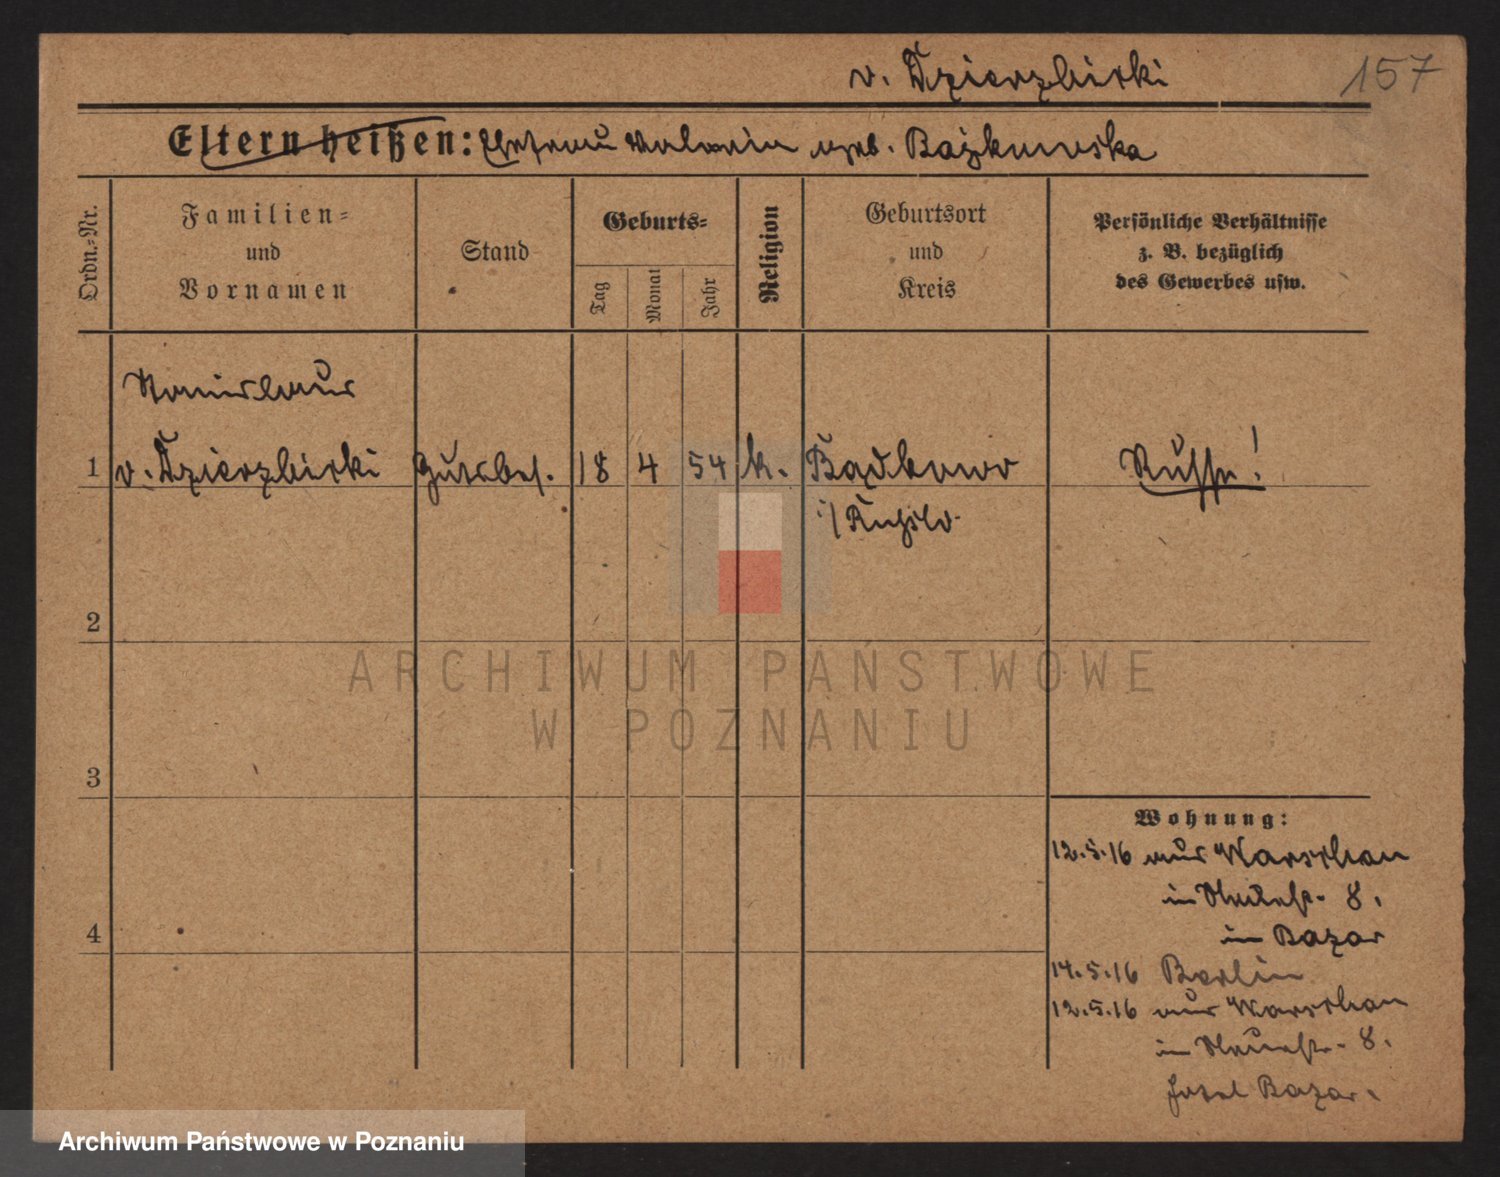 v. Dzierzbicki
157
Eltern heißen: Ehefrau Valerie geb. Bażkowska
Ordn.=Nr.
Familien=
und
Vornamen
Stand
Geburts=
Tag
Monat
Jahr
Religion
Geburtsort
und
Kreis
Persönliche Verhältnisse
z. B. bezüglich
des Gewerbes usw.
Stanislaus
1 v. Dzierzbicki Gutsbes. 18 4 54 k. Russe!
2
3
4
Wohnung:
12.5.16 aus Warschau
in 8.
in Bazar
14.5.16 Berlin
12.5.16 aus Warschau
in Neuestr. 8.
Hotel Bazar.
ARCHIWUM PAŃSTWOWE
W POZNANIU
Archiwum Państwowe w Poznaniu